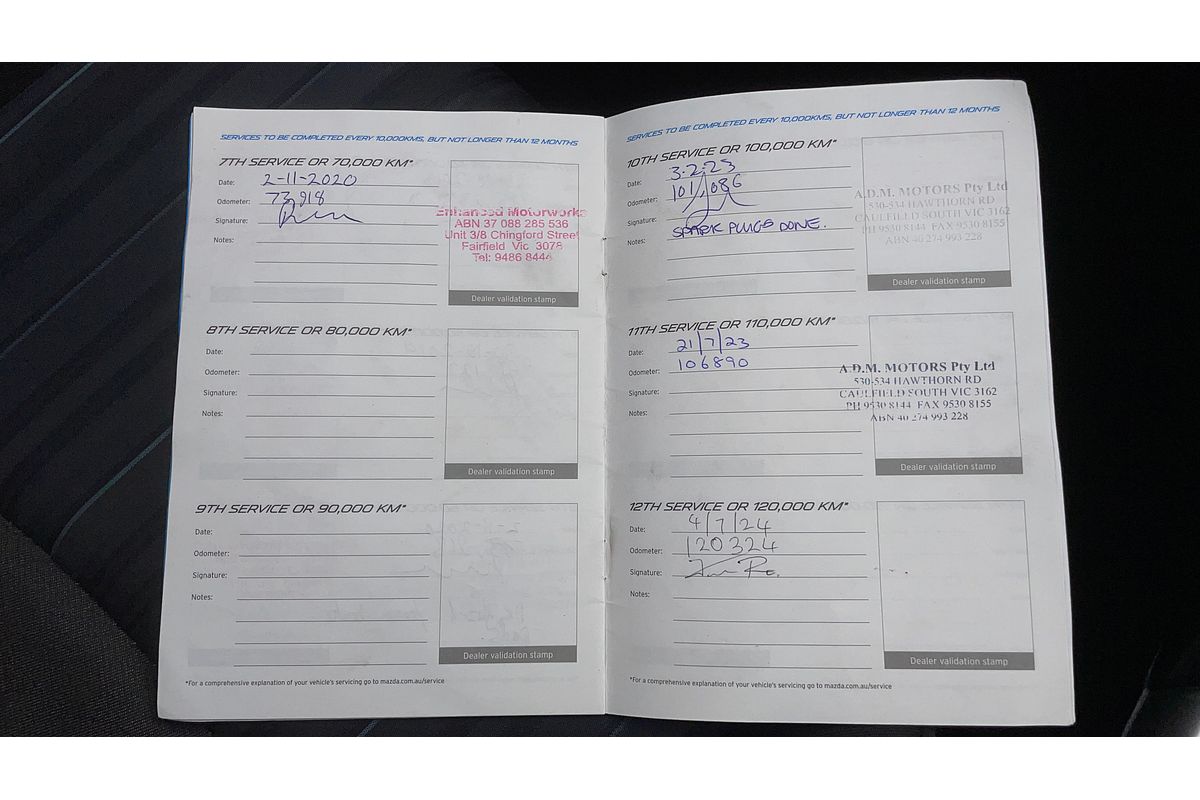 SERVICES TO BE COMPLETED EVERY 10,000KMS, BUT NOT LONGER THAN 12 MONTHS
7TH SERVICE OR 70,000 KM*
Date: 2-11-2020
Odometer: 73,918
Signature:
Notes:
Enhanced Motorworks
ABN 37 088 285 536
Unit 3/8 Chingford Street
Fairfield Vic 3078
Tel: 9486 8444
Dealer validation stamp
8TH SERVICE OR 80,000 KM*
Date:
Odometer:
Signature:
Notes:
Dealer validation stamp
9TH SERVICE OR 90,000 KM*
Date:
Odometer:
Signature:
Notes:
Dealer validation stamp
*For a comprehensive explanation of your vehicle's servicing go to mazda.com.au/service
SERVICES TO BE COMPLETED EVERY 10,000KMS, BUT NOT LONGER THAN 12 MONTHS
10TH SERVICE OR 100,000 KM*
Date: 3.2.23
Odometer: 101,086
Signature:
Notes: SPARK PLUGS DONE.
A.D.M. MOTORS Pty Ltd
530-534 HAWTHORN RD
CAULFIELD SOUTH VIC 3162
PH 9530 8144 FAX 9530 8155
ABN 40 274 993 228
Dealer validation stamp
11TH SERVICE OR 110,000 KM*
Date: 21/7/23
Odometer: 106890
Signature:
Notes:
A.D.M. MOTORS Pty Ltd
530-534 HAWTHORN RD
CAULFIELD SOUTH VIC 3162
PH 9530 8144 FAX 9530 8155
ABN 40 274 993 228
Dealer validation stamp
12TH SERVICE OR 120,000 KM*
Date: 4/7/24
Odometer: 120324
Signature:
Notes:
Dealer validation stamp
*For a comprehensive explanation of your vehicle's servicing go to mazda.com.au/service